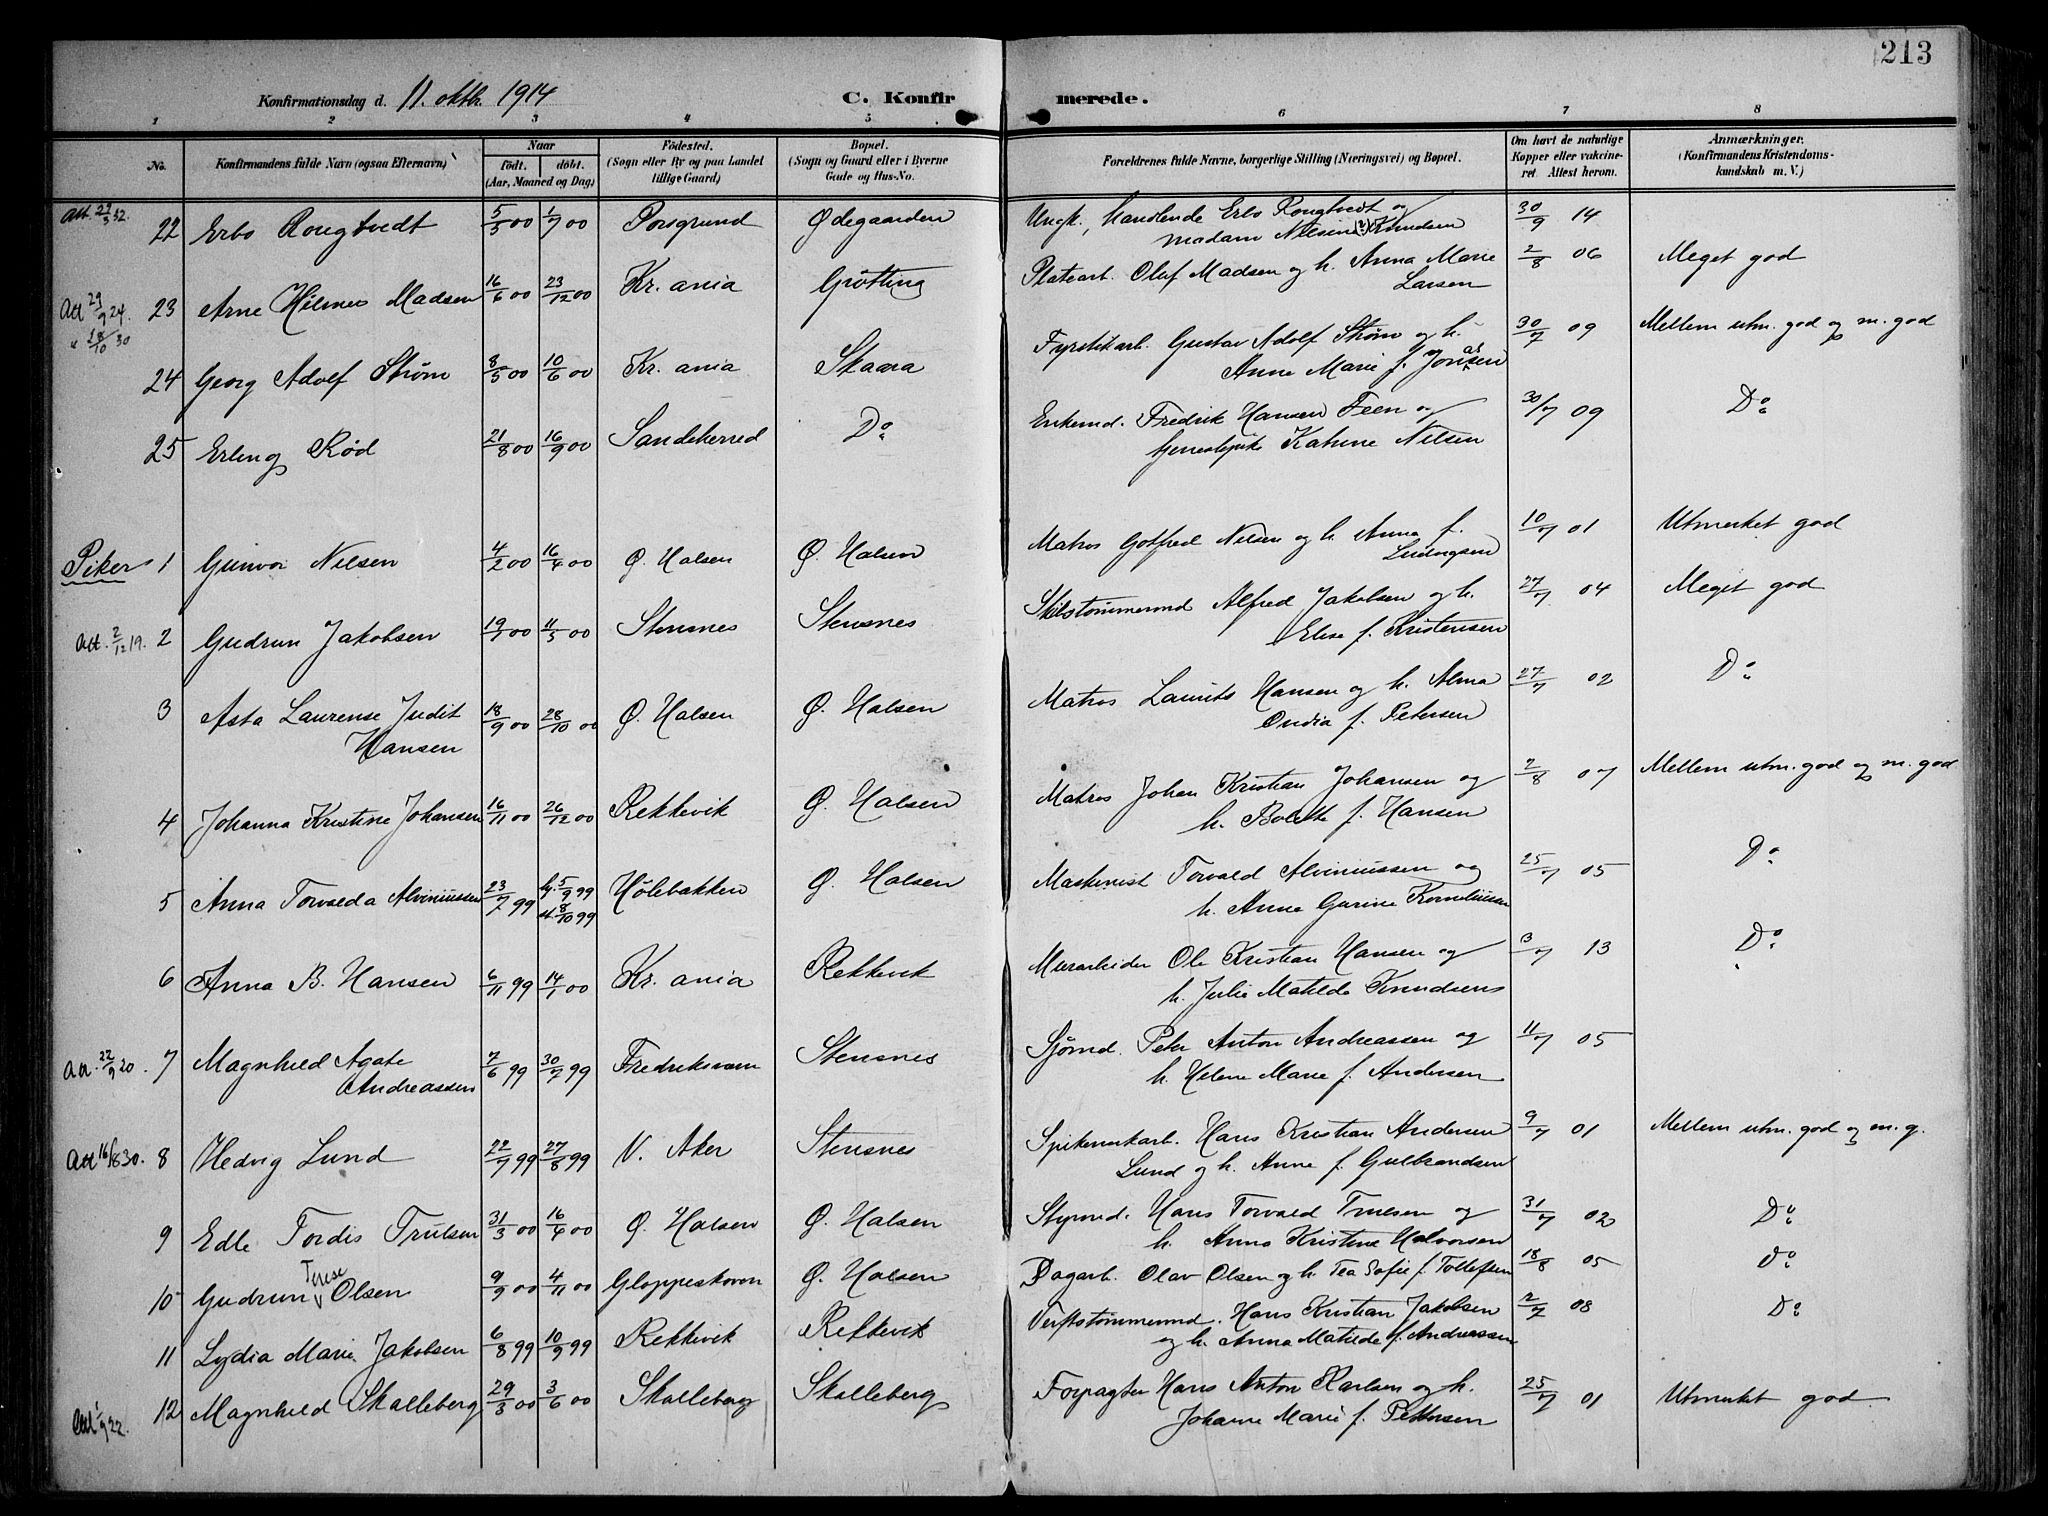 213
Konfirmationsdag d. 11. oktb. 1914 C. Konfirmerede.
1 2 3 4 5 6 7 8
No. Konfirmandens fulde Navn (ogsaa Efternavn) Naar födt. döbt. (Aar, Maaned og Dag) Födested. (Sogn eller By og paa Landet tillige Gaard) Bopæl. (Sogn og Gaard eller i Byerne Gade og Hus-No. Forældrenes fulde Navne, borgerlige Stilling (Næringsvei) og Bopæl. Om havt de naturlige Kopper eller vakcineret. Attest herom. Anmærkninger. (Konfirmandens Kristendomskundskab m. V.)
22 Erbo Rougtvedt 5/5 00 1/7 00 Porsgrund Ødegaarden Ungk., handlende Erbo Rougtvedt og 30/9 14
madam Nilsine (?) Knudsen
Att 29/9 24. 23 Arne Hilmer Madsen 16/6 00 23/12 00 Kr. ania Grøtting Platearb. Oluf Madsen og h. Anna Marie 2/8 06 Meget god
Larsen
" 28/10 30
24 Georg Adolf Strøm 8/5 00 10/6 00 Kr. ania Skaara Fyrstikarb. Gustav Adolf Strøm og h. 30/7 09 Mellem utm. god og m. god
Anne Marie f. Jonasen
25 Erling Rød 21/8 00 16/9 00 Sandeherred Do Enkemd. Fredrik Hansen Feen og 30/7 09 Do
Katrine Nilsen
Piker 1 Gunvor Nilsen 4/2 00 16/4 00 Ø. Halsen Ø. Halsen Matros Gotfred Nilsen og h. Anna f. 10/7 01 Utmerket god
Ludvigsen
Att. 2/12 19. 2 Gudrun Jakobsen 19/3 00 11/5 00 Stensnes Stensnes Skibstømmermd Alfred Jakobsen og h. 27/7 04 Meget god
Elise f. Kristensen
3 Asta Laurense Judit 18/9 00 28/10 00 Ø. Halsen Ø. Halsen Matros Laurits Hansen og h. Alma 27/7 02 Do
Hansen Ondia f. Petersen
4 Johanna Kristine Johansen 16/11 00 26/12 00 Rekkevik Ø. Halsen Matros Johan Kristian Johansen og 2/8 07 Mellem utm. god og m. god
h. Bolette f. Hansen
5 Anna Torvalda Alviniussen 23/7 99 hj. 5/9 99 Hølebakken Ø. Halsen Maskinist Torvald Alviniussen og 25/7 05 Do
st. 8/10 99 h. Anne Gurine Korneliusen
6 Anna B. Hansen 6/11 99 14/1 00 Kr. ania Rekkevik Murarbeider Ole Kristian Hansen og 3/7 13 Do
h. Julie Matilde Knudsens
Att. 22/9 20. 7 Magnhild Agate 7/6 99 30/7 99 Fredriksværn Stensnes Sjømd. Peter Anton Andreassen og 11/7 05
Andreassen h. Helene Marie f. Andersen
Att 16/8 30. 8 Hedvig Lund 22/7 99 27/8 99 V. Aker Stensnes Spikerverkarb. Hans Kristian Andersen 9/7 01 Mellem utm. god og m. g.
Lund og h. Anne f. Gulbrandsen
9 Edle Tordis Trulsen 31/3 00 16/4 00 Ø. Halsen Ø. Halsen Styrmd. Hans Torvald Trulsen og 31/7 02 Do
h. Anna Kristine Halvorsen
10 Gudrun Terese Olsen 9/9 00 4/11 00 Gloppeskoven Ø. Halsen Dagarb. Olav Olsen og h. Tea Sofie f. Tollefsen 18/8 05 Do
11 Lydia Marie Jakobsen 6/8 99 10/9 99 Rekkevik Rekkevik Verftstømmermd. Hans Kristian Jakobsen 2/7 08 Do
og h. Anna Matilde f. Andreassen
Att 1/9 22. 12 Magnhild Skalleberg 29/3 00 3/6 00 Skalleberg Skalleberg Forpagter Hans Anton Karlsen og h. 25/7 01 Utmerket god.
Johanne Marie f. Pettersen